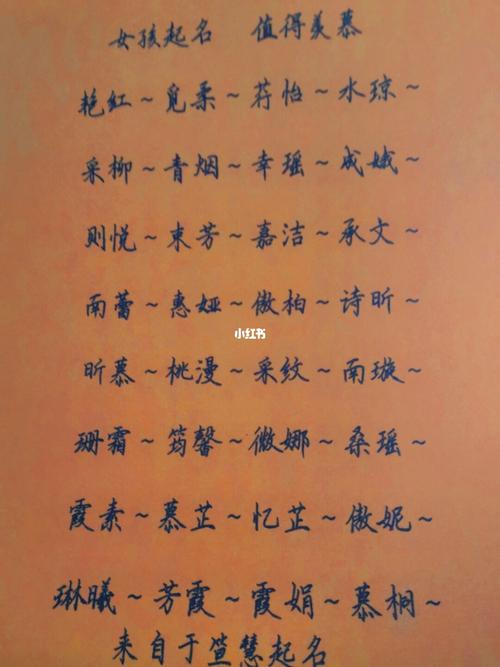 女孩起名 值得羡慕
艳红~觅柔~荮怡~水琼~
采柳~青烟~幸瑶~成娥~
则悦~束芳~嘉洁~承文~
南蕾~惠娅~傲柏~诗昕~
小红书
昕慕~桃漫~采纹~南璇~
珊霜~筠馨~微娜~桑瑶~
霞素~慕芷~忆芷~傲妮~
琳曦~芳霞~霞娟~慕桐~
来自于萱慧起名